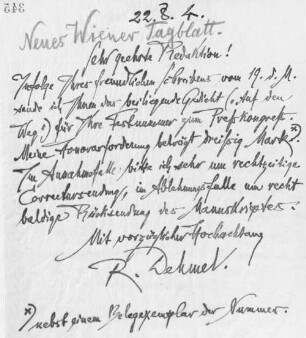 22. 8. 4.
Neues Wiener Tagblatt.
Sehr geehrte Redaktion!
Infolge Ihres freundlichen Schreibens vom 19. d. M.
sende ich Ihnen das beiliegende Gedicht („Auf den
Weg“) für Ihre Festnummer zum Preßkongreß.
Meine Honorarforderung beträgt dreißig Mark. *)
Im Annahmefalle bitte ich sehr um rechtzeitige
Correctursendung, im Ablehnungsfalle um recht
baldige Rücksendung des Manuskriptes.
Mit vorzüglicher Hochachtung
R. Dehmel.
*) nebst einem Belegexemplar der Nummer.